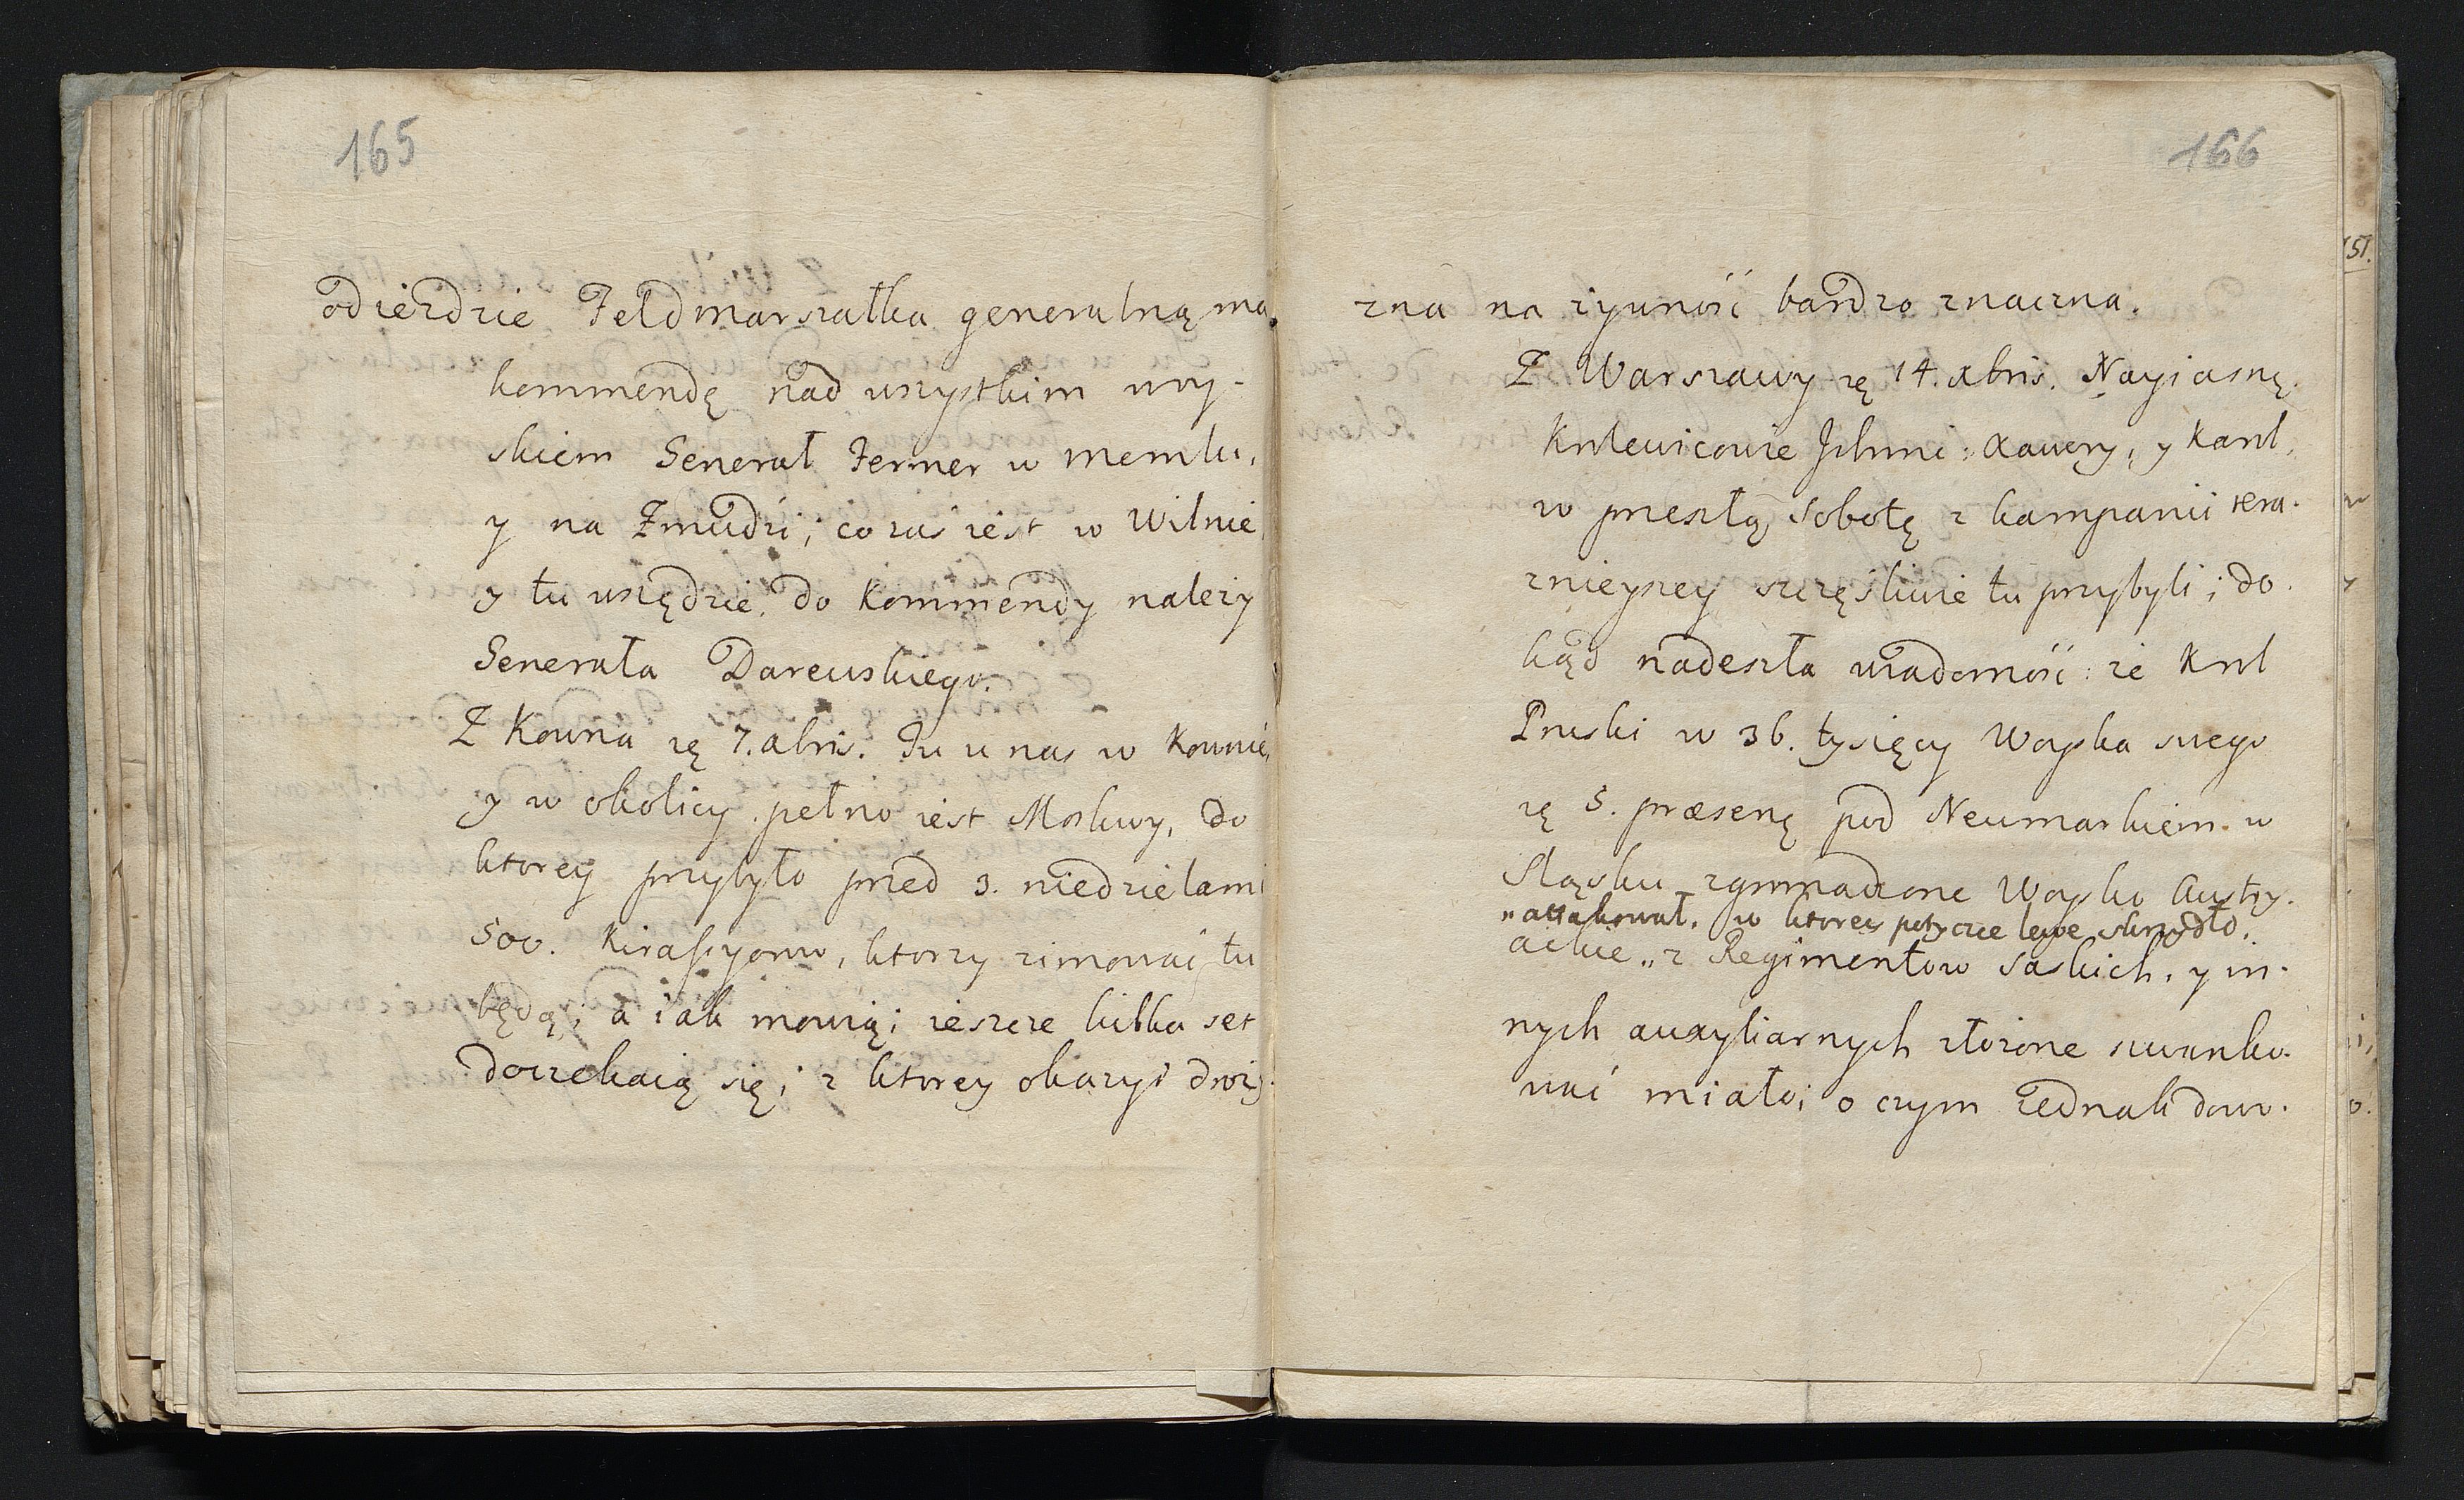 165
odieżdzie Feldmarszałka generalną ma
kommendę nad wszystkim woy-
skiem Generał Fermer w memlu,
y na Zmudzi; co zaś iest w Wilnie
y tu wszędzie, do Kommendy należy
Generała Darewskiego.
Z Kowna zę 7. Xbris. Tu u nas w Kownie,
y w okolicy pełno iest Moskwy, do
ktorey przybyło przed 3. niedzielami
500. Kirassyerow, ktorzy zimować tu
będą; a iak mowią; ieszcze kilka set
doczekaią się; z ktorey okazyi droży-
166
zna na żywność bardzo znaczna.
Z Warszawy zę 14. Xbris. Nayiasnę.
Krolewicowie Jchmć: Xawery, y Karol,
w przeszłą Sobotę z kampanii tera-
znieyszey szczęśliwie tu przybyli; do-
kąd nadeszła wiadomość: że Krol
Pruski w 36. tysięcy Woyska swego
zę 5. præsenę pod Neumarkiem w
Sląsku zgromadzone Woysko Austry-
„attakował, w ktorey potyczce lewe skrzydło,
ackie „z Regimentow Saskich, y in-
nych auxyliarnych złożone szwanko-
wać miało; o czym iednak dowo-
151.
y
o.